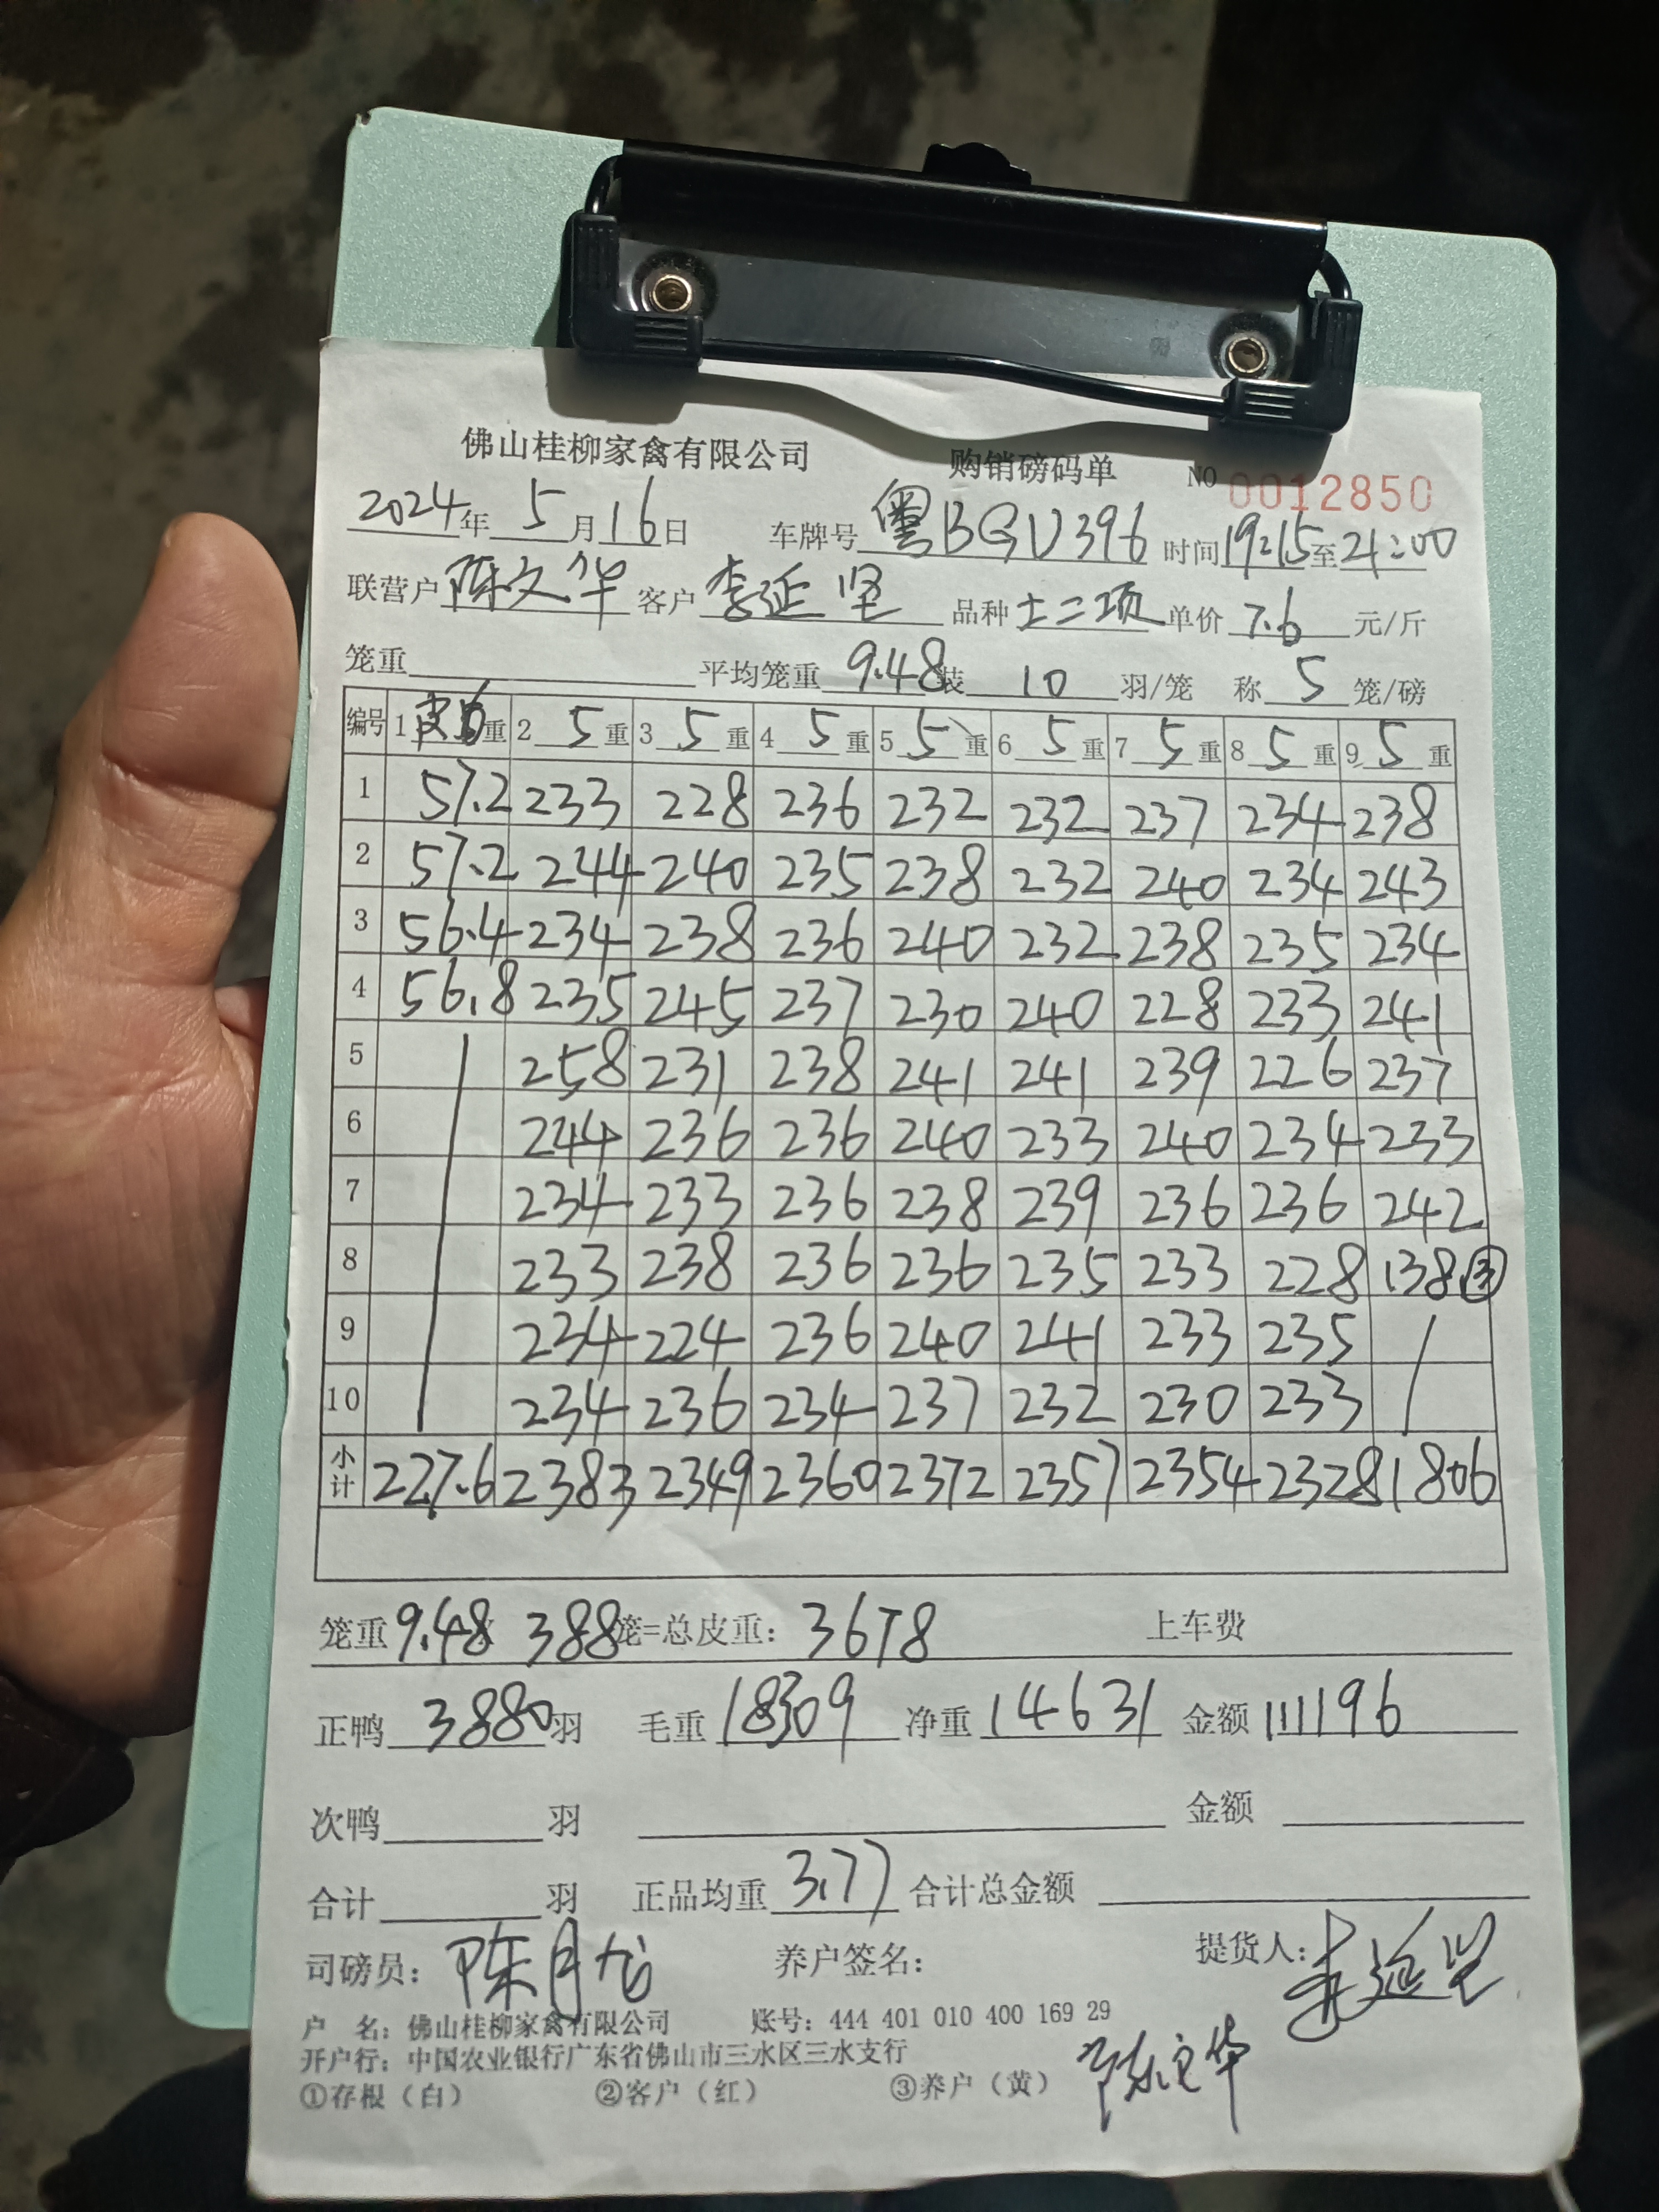 佛山桂柳家禽有限公司 购销磅码单 NO 0012850
2024年 5月16日 车牌号 粤BGU396 时间19:15至21:00
联营户 陈文华 客户 李延坚 品种 土二项 单价 7.6 元/斤
笼重 平均笼重 9.48 装 10 羽/笼 称 5 笼/磅
编号 1 重 2 5 重 3 5 重 4 5 重 5 5 重 6 5 重 7 5 重 8 5 重 9 5 重
1 57.2 233 228 236 232 232 237 234 238
2 57.2 244 240 235 238 232 240 234 243
3 56.4 234 238 236 240 232 238 235 234
4 56.8 235 245 237 230 240 228 233 241
5 258 231 238 241 241 239 226 237
6 244 236 236 240 233 240 234 233
7 234 233 236 238 239 236 236 242
8 233 238 236 236 235 233 228 138 ③
9 234 224 236 240 241 233 235
10 234 236 234 237 232 230 233
小计 227.6 2383 2349 2360 2372 2357 2354 2328 1806
笼重 9.48 388笼=总皮重: 3678 上车费
正鸭 3880 羽 毛重 18309 净重 14631 金额 111196
次鸭 羽 金额
合计 羽 正品均重 3.77 合计总金额
司磅员: 陈月龙 养户签名: 提货人: 李延坚
户 名: 佛山桂柳家禽有限公司 账号: 444 401 010 400 169 29
开户行: 中国农业银行广东省佛山市三水区三水支行
①存根（白） ②客户（红） ③养户（黄） 陈文华